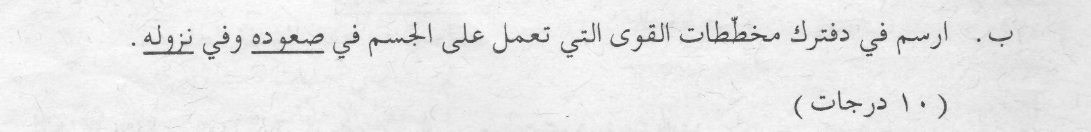 ب. ارسم في دفترك مخطّطات القوى التي تعمل على الجسم في صعوده وفي نزوله.
(١٠ درجات)